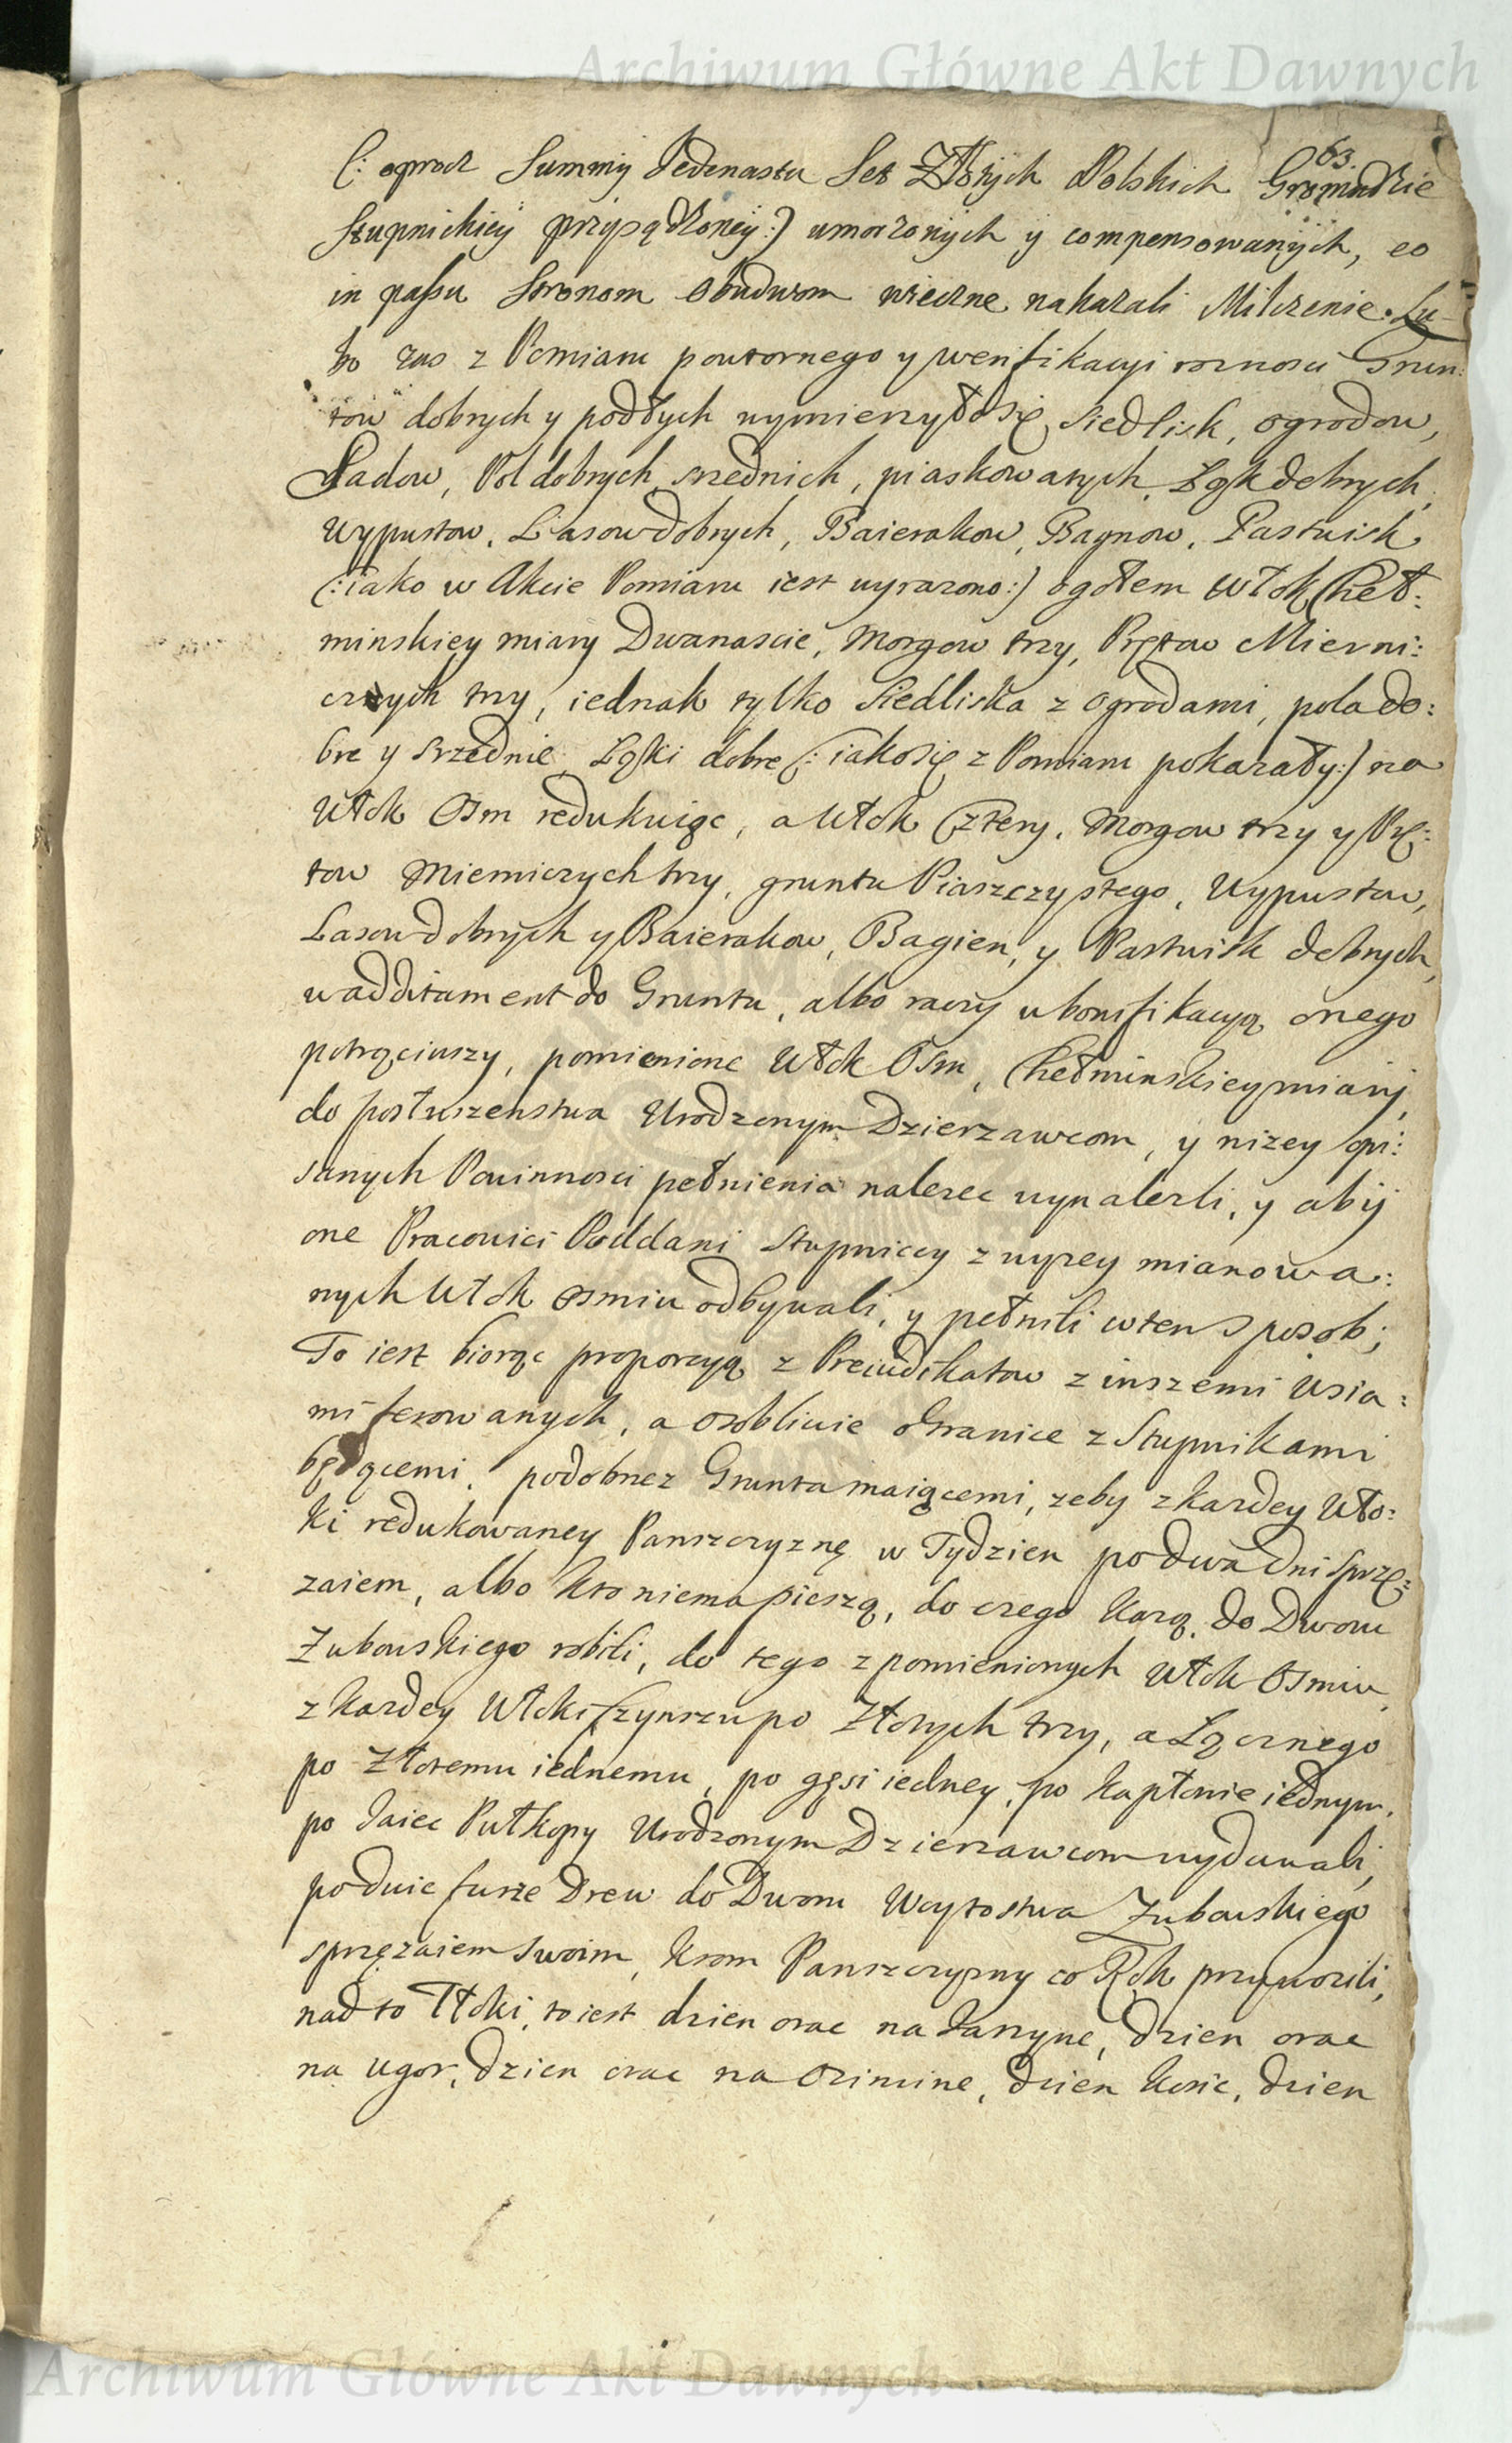 Archiwum Główne Akt Dawnych
63.
(: oprocz Summy Jedenastu Set Złotych Polskich Gromadzie
Stupnickiey przysądzoney :) umorzonych y compensowanych, eo
in passu Stronom Obudwom wieczne nakazali Milczenie. Lu-
bo zas z Pomiaru powtornego y weryfikacyi roznosci Grun:
tow dobrych y podłych wymierzyło się Siedlisk, ogrodow,
Sadow, Pol dobrych, srzednich, piaskowatych, Łąk dobrych,
Wypustow, Lasow dobrych, Baierakow, Bagnow, Pastwisk
(: iako w Akcie Pomiaru iest wyrazono :) ogołem Włok Cheł:
minskiey miary Dwanascie, Morgow trzy, Prętow Mierni:
czych trzy, iednak tylko Siedliska z Ogrodami, pola do:
bre y srzednie, Łąki dobre (: iako się z Pomiaru pokazały :) na
Włok Osm redukuiąc, a Włok Cztery, Morgow trzy y Prę:
tow Mierniczych trzy, gruntu Piaszczystego, Wypustow,
Lasow dobrych y Baierakow, Bagien, y Pastwisk dobrych,
w additament do Gruntu, albo raczy w bonifikacyą onego
potrąciwszy, pomienione Włok Osm, Chełminskiey miary,
do posłuszenstwa Urodzonym Dzierzawcom, y nizey opi:
sanych Powinnosci pełnienia nalezec wynalezli, y aby
one Pracowici Poddani Stupniccy z wyzey mianowa:
nych Włok osmiu odbywali, y pełnili wten sposob;
To iest biorąc proporcyą z Preiudikatow z inszemi Wsia:
mi ferowanych, a osobliwie ogranice z Stupnikami
będącemi, podobnez Grunta maiącemi, zeby z kazdey Wło:
ki redukowaney Panszczyznę w Tydzien po dwa dni sprzę:
zaiem, albo kto niema pieszą, do czego kazą, do Dworu
Zubowskiego robili, do tego z pomienionych Włok Osmiu,
z kazdey Włoki Czynszu po Złotych trzy, a Łącznego
po Złotemu iednemu, po gęsi iedney, po kapłonie iednym,
po Jaiec Pułkopy Urodzonym Dzierzawcom wydawali,
po dwie furze Drew do Dworu Woytostwa Zubowskiego
sprzęzaiem swoim, krom Panszczyzny co Rok przywozili,
nad to Tłoki, to iest dzien orac na Jarzynę, dzien orac
na ugor, dzien orac na Ozimine, dzien kosic, dzien
Archiwum Główne Akt Dawnych